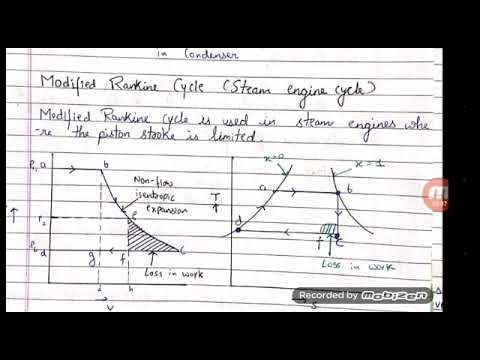 in Condenser
Modified Rankine Cycle (Steam engine cycle)
Modified Rankine cycle is used in steam engines whe
-re the piston stroke is limited.
x=0
x=1
P1, a
b
Non-flow
isentropic
expansion
T
a
b
P2
e
d
d
g
f
c
f
c
Loss in work
Loss in work
h
V
S
Recorded by mobizen